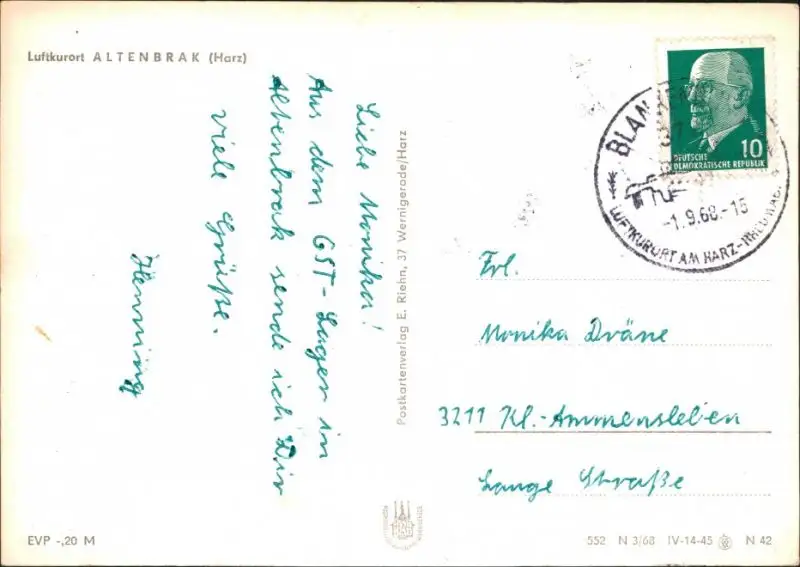 Luftkurort ALTENBRAK (Harz)
Liebe Monika!
Aus dem GST-Lager in
Altenbrak sende ich Dir
viele Grüße.
Henning
Postkartenverlag E. Riehn, 37 Wernigerode/Harz
10
DEUTSCHE
DEMOKRATISCHE REPUBLIK
37
-1.9.68.-15
LUFTKURORT AM HARZ-
Frl.
Monika Dräne
3211 Kl.-Ammensleben
Lange Straße
EVP -,20 M
552 N 3/68 IV-14-45 N 42